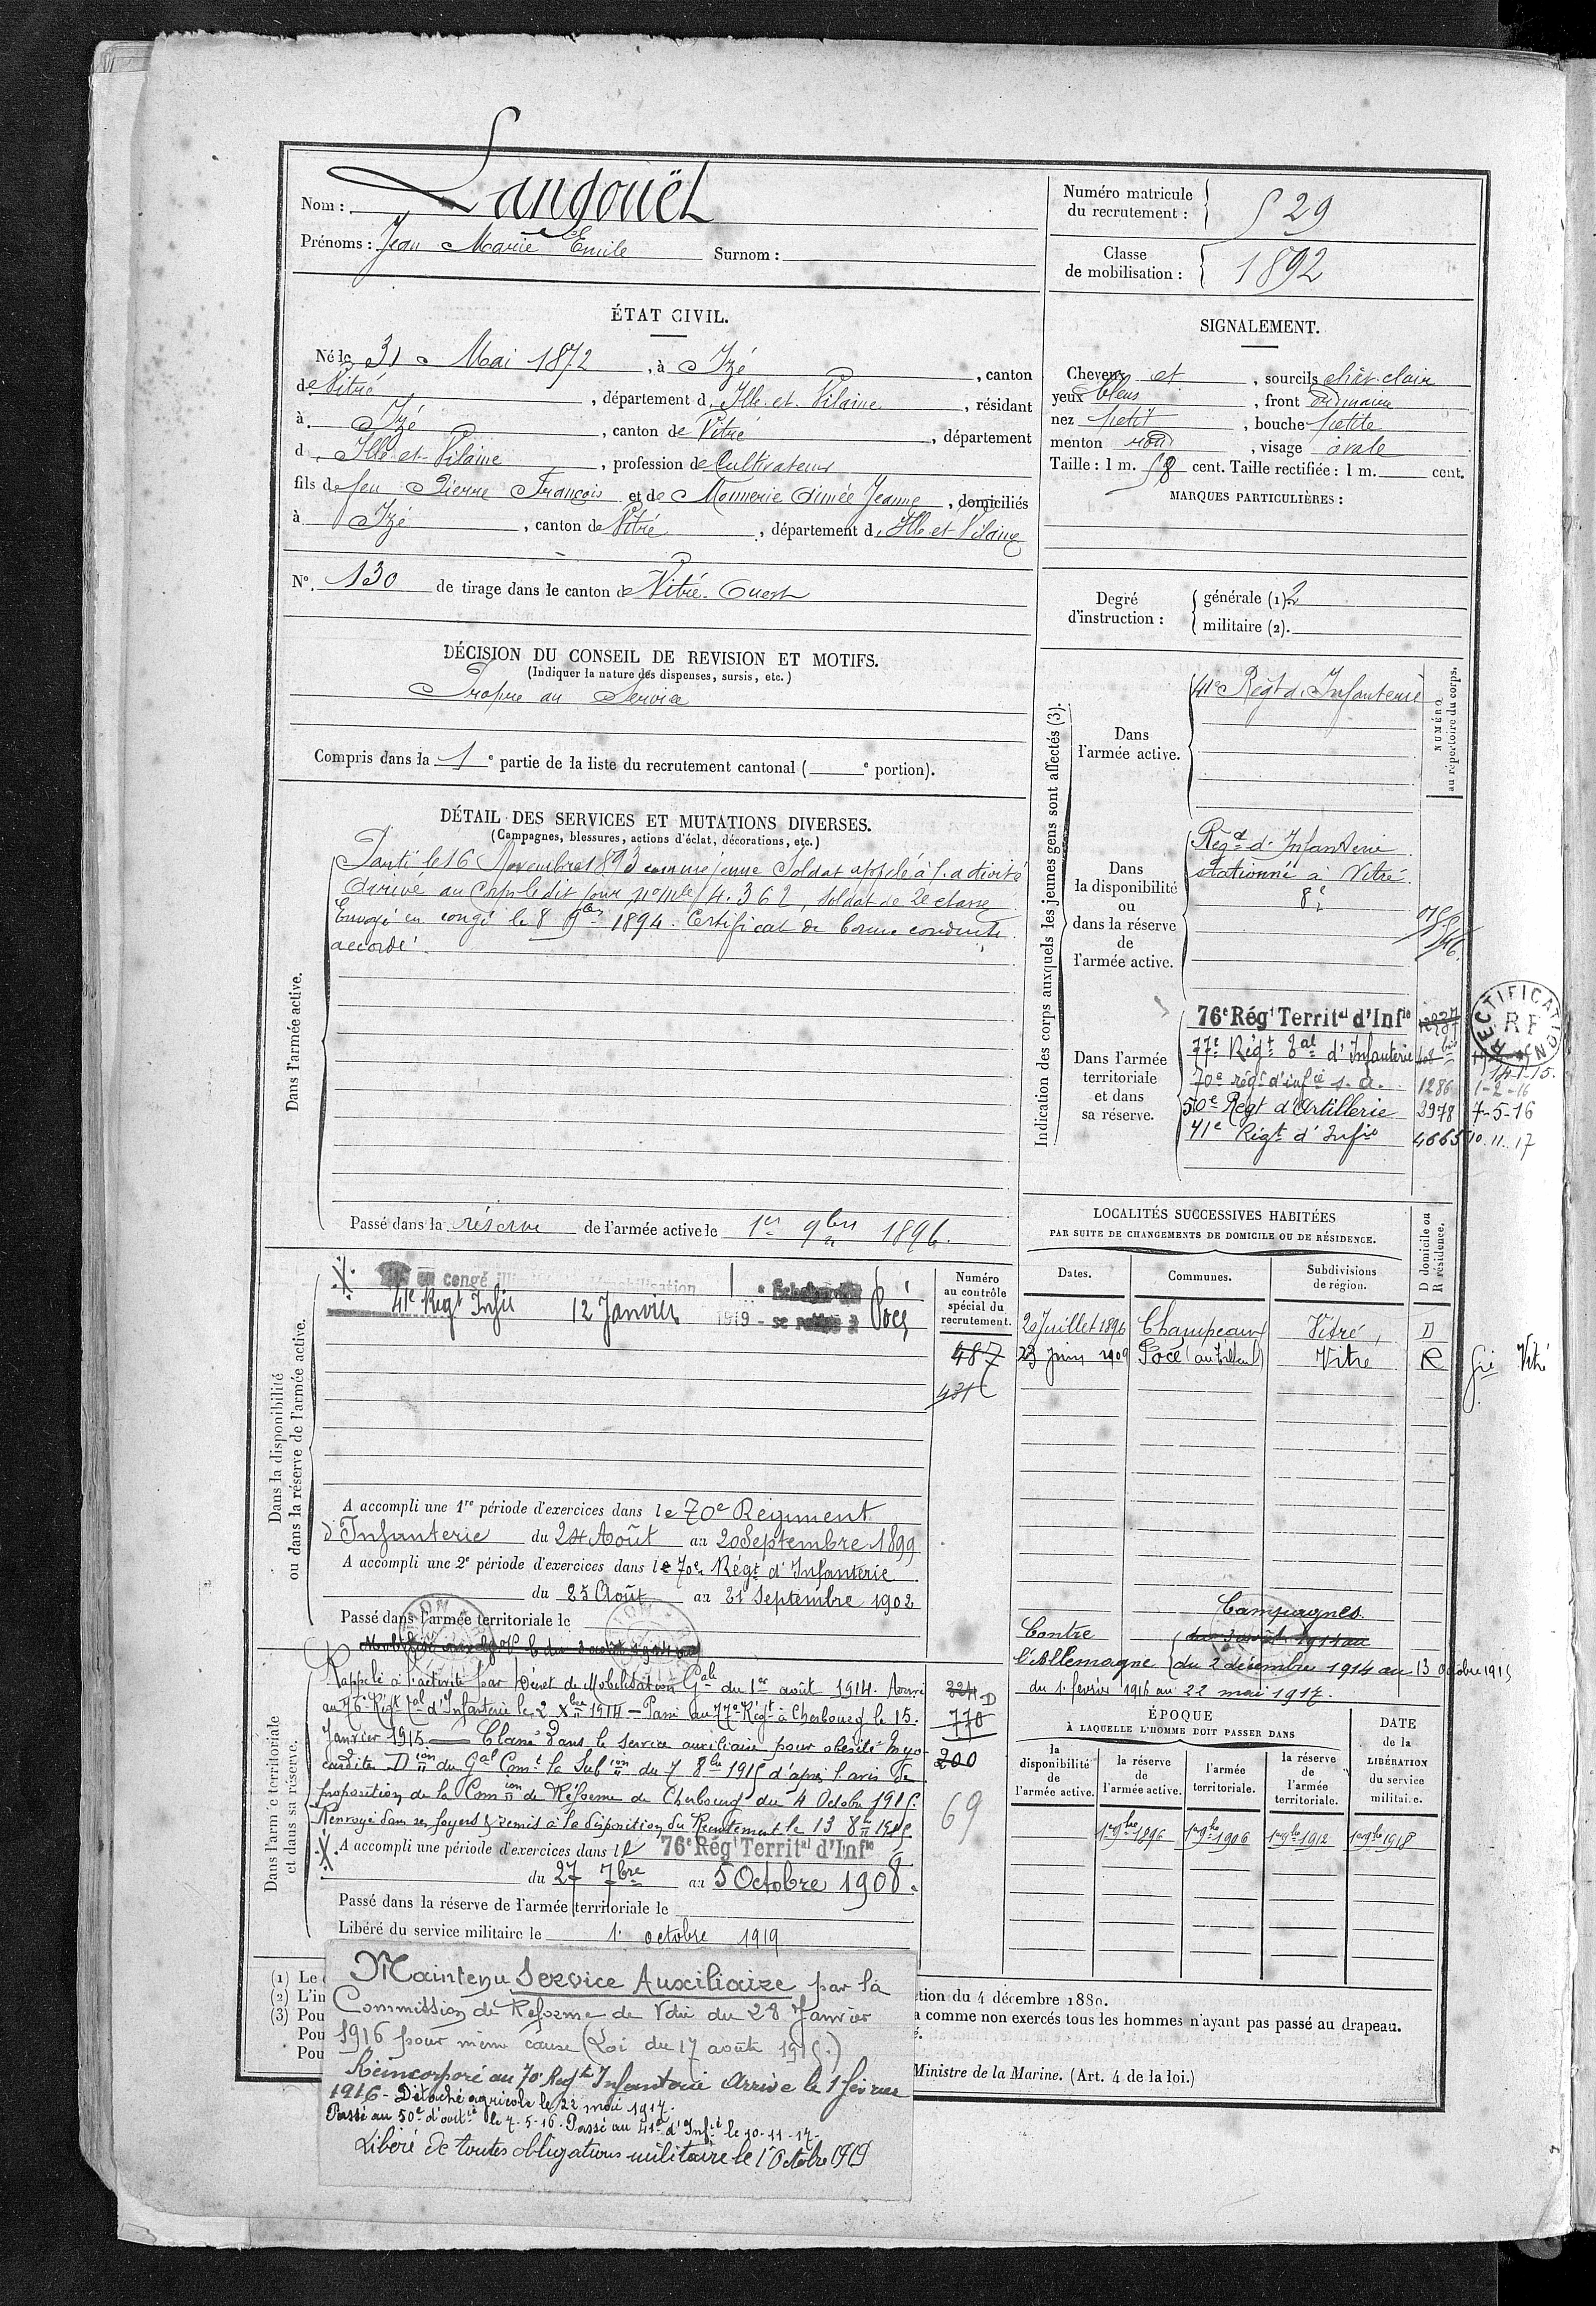 Nom : Langouët
Prénoms : Jean Marie Emile Surnom :
Numéro matricule du recrutement : 529
Classe de mobilisation : 1892
ÉTAT CIVIL.
Né le 31 Mai 1872, à Izé, canton
de Vitré, département d'Ille-et-Vilaine, résidant
à Izé, canton de Vitré, département
d'Ille-et-Vilaine, profession de Cultivateur
fils de feu Pierre François et de Monnerie Aimée Jeanne, domiciliés
à Izé, canton de Vitré, département d'Ille et Vilaine
N° 130 de tirage dans le canton de Vitré-Ouest
SIGNALEMENT.
Cheveux et, sourcils chât. clair
yeux bleus, front ordinaire
nez petit, bouche petite
menton rond, visage ovale
Taille : 1 m. 58 cent. Taille rectifiée : 1 m. cent.
MARQUES PARTICULIÈRES :
Degré d'instruction : générale (1). 2
militaire (2).
DÉCISION DU CONSEIL DE REVISION ET MOTIFS.
(Indiquer la nature des dispenses, sursis, etc.)
Propre au Service
Compris dans la 1e partie de la liste du recrutement cantonal ( e portion).
DÉTAIL DES SERVICES ET MUTATIONS DIVERSES.
(Campagnes, blessures, actions d'éclat, décorations, etc.)
Dans l'armée active.
Parti le 16 Novembre 1893 comme jeune Soldat appelé à l'activité
Arrivé au Corps ledit jour, no mle 4.362, soldat de 2e classe
Envoyé en congé le 8 9bre 1894. Certificat de bonne conduite
accordé.
Passé dans la réserve de l'armée active le 1er 9bre 1896.
Indication des corps auxquels les jeunes gens sont affectés (3).
NUMÉRO au répertoire du corps.
Dans l'armée active.
41e Régt d'Infanterie
Dans la disponibilité ou dans la réserve de l'armée active.
Régt d'Infanterie
stationné à Vitré.
8e
Dans l'armée territoriale et dans sa réserve.
76e Régt Territal d'Infie
77e Régt Tal d'Infanterie 408 bis
14-1-15.
70e régt d'infie s.a. 1286 1-2-16
50e Régt d'Artillerie 3978 7-5-16
41e Régt d'Infie 4665 10.11.17
RECTIFICATION
RF
LOCALITÉS SUCCESSIVES HABITÉES
PAR SUITE DE CHANGEMENTS DE DOMICILE OU DE RÉSIDENCE.
Dates. Communes. Subdivisions de région. D domicile ou R résidence.
20 Juillet 1896 Champeaux Vitré, D
23 Juin 1909 Pocé (au Tilleul) Vitré R
Vitré
Dans la disponibilité ou dans la réserve de l'armée active.
Numéro au contrôle spécial du recrutement.
en congé
41e Regt Infie 12 Janvier 1919 - se retire à Pocé
487
431
A accompli une 1re période d'exercices dans le 70e Regiment
d'Infanterie du 24 Août au 20 Septembre 1899
A accompli une 2e période d'exercices dans le 70e Régt d'Infanterie
du 25 Août au 21 Septembre 1902
Passé dans l'armée territoriale le
Campagnes
Contre
l'Allemagne du 2 décembre 1914 au 13 octobre 1915
du 1er février 1916 au 22 mai 1917.
Dans l'armée territoriale et dans sa réserve.
Rappelé à l'activité par Décret de Mobilisation Gale du 1er août 1914. Arrivé
au 76e Régt Tal d'Infanterie le 2 Xbre 1914 - Passé au 77e Régt à Cherbourg le 15
Janvier 1915. Classé dans le service auxiliaire pour obésité Myo-
cardite Dion du Gal Comt la Subion du 7 8bre 1915 d'après l'avis de
proposition de la Comion de Réforme de Cherbourg du 4 Octobre 1915.
Renvoyé dans ses foyers & remis à la disposition du Recrutement le 13 8bre 1915
324 D
778
200
69
A accompli une période d'exercices dans le 76e Régt Territal d'Infie
du 27 7bre au 5 Octobre 1908.
Passé dans la réserve de l'armée territoriale le
Libéré du service militaire le 1er octobre 1919
ÉPOQUE
À LAQUELLE L'HOMME DOIT PASSER DANS
la disponibilité de l'armée active. la réserve de l'armée active. l'armée territoriale. la réserve de l'armée territoriale.
DATE de la LIBÉRATION du service militaire.
1er 9bre 1896 1er 9bre 1906 1er 9bre 1912 1er 9bre 1918
(1) Le
(2) L'in
(3) Pou
Pou
Pou
ction du 4 décembre 1889.
a comme non exercés tous les hommes n'ayant pas passé au drapeau.
Ministre de la Marine. (Art. 4 de la loi.)
Maintenu Service Auxiliaire par la
Commission de Reforme de Vitré du 28 Janvier
1916 pour même cause (Loi du 17 août 1915.)
Réincorporé au 70e Regt Infanterie Arrivé le 1er février
1916 - Détaché agricole le 22 mai 1917.
Passé au 50e d'artie le 7-5-16. Passé au 41e d'Infie le 10-11-17-
Libéré de toutes obligations militaire le 1er Octobre 1919